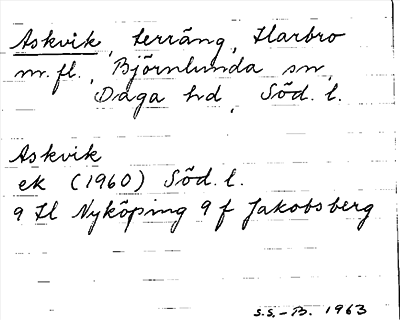 Askvik, terräng, Harbro
m. fl., Björnlunda sn,
Daga hd, Söd. l.
Askvik
ek (1960) Söd. l.
9 H Nyköping 9 f Jakobsberg
S.S.-B. 1963